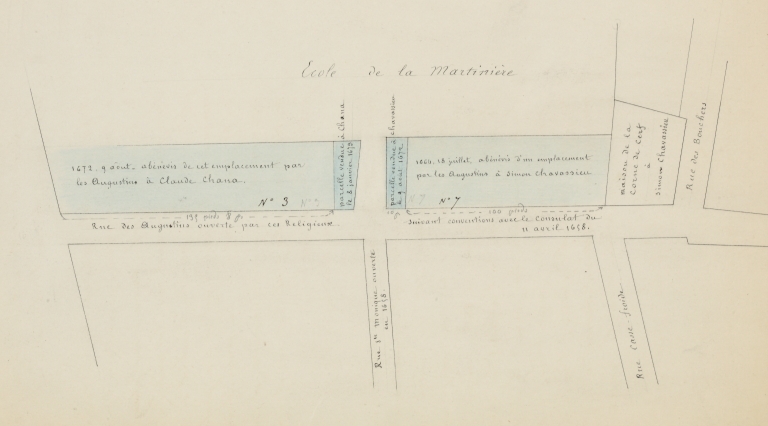 Ecole de la Martinière
1672. 9 août. abénévis de cet emplacement par
les Augustins à Claude Chana.
N° 3
parcelle vendue à Chana
le 3 janvier 1678
parcelle vendue à Chavassieu
le 9 août 1672
18 juillet. abénévis d'un emplacement
par les Augustins à Simon Chavassieu
N° 7
maison de la
Corne de Cerf
à
Simon Chavassieu
Rue des Bouchers
pieds
100 pieds
Rue des Augustins ouverte par ces Religieux
suivant conventions avec le Consulat du
11 avril 1658.
Rue Ste Monique ouverte
en 1658.
Rue Casse froide